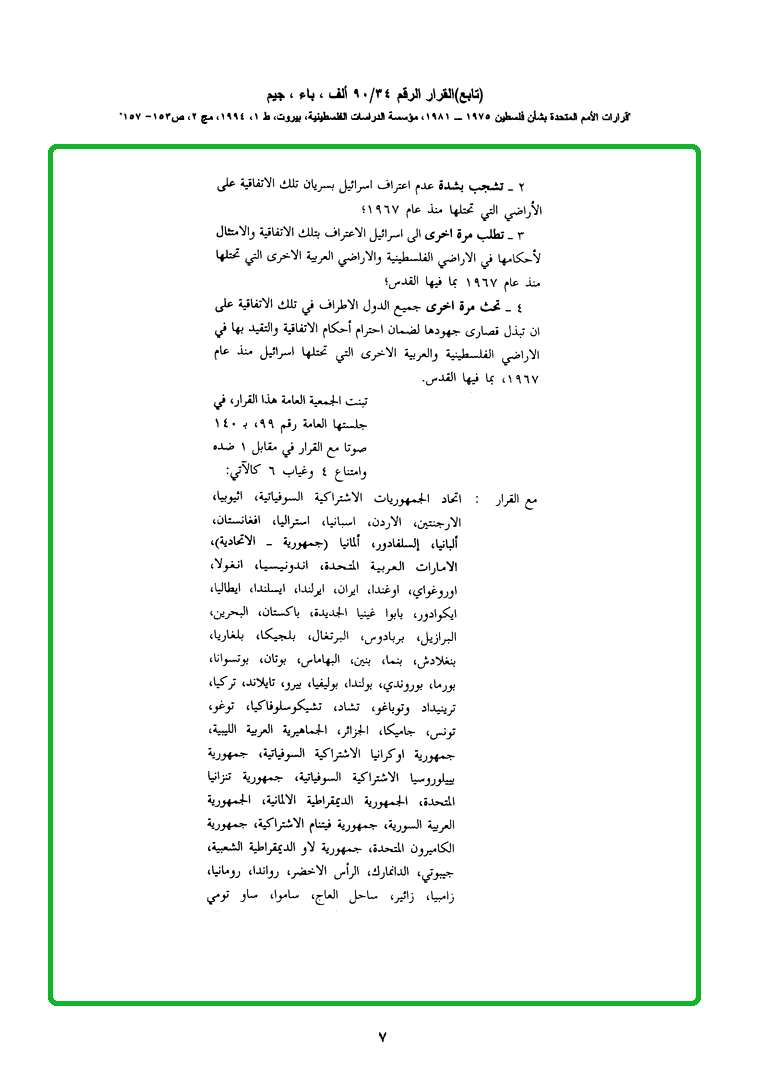 (تابع)القرار الرقم ٩٠/٣٤ ألف ، باء ، جيم
"قرارات الأمم المتحدة بشأن فلسطين ١٩٧٥ ــ ١٩٨١، مؤسسة الدراسات الفلسطينية، بيروت، ط ١، ١٩٩٤، مج ٢، ص١٥٣– ١٥٧"
٢ ـ تشجب بشدة عدم اعتراف اسرائيل بسريان تلك الاتفاقية على
الأراضي التي تحتلها منذ عام ١٩٦٧؛
٣ ـ تطلب مرة اخرى الى اسرائيل الاعتراف بتلك الاتفاقية والامتثال
لأحكامها في الاراضي الفلسطينية والاراضي العربية الاخرى التي تحتلها
منذ عام ١٩٦٧ بما فيها القدس؛
٤ ـ تحث مرة اخرى جميع الدول الاطراف في تلك الاتفاقية على
ان تبذل قصارى جهودها لضمان احترام أحكام الاتفاقية والتقيد بها في
الاراضي الفلسطينية والعربية الاخرى التي تحتلها اسرائيل منذ عام
١٩٦٧، بما فيها القدس.
تبنت الجمعية العامة هذا القرار، في
جلستها العامة رقم ٩٩، بـ ١٤٠
صوتا مع القرار في مقابل ١ ضده
وامتناع ٤ وغياب ٦ كالآتي:
مع القرار : اتحاد الجمهوريات الاشتراكية السوفياتية، اثيوبيا،
الارجنتين، الاردن، اسبانيا، استراليا، افغانستان،
ألبانيا، إلسلفادور، ألمانيا (جمهورية ـ الاتحادية)،
الامارات العربية المتحدة، اندونيسيا، انغولا،
اوروغواي، اوغندا، ايران، ايرلندا، ايسلندا، ايطاليا،
ايكوادور، بابوا غينيا الجديدة، باكستان، البحرين،
البرازيل، بربادوس، البرتغال، بلجيكا، بلغاريا،
بنغلادش، بنما، بنين، البهاماس، بوتان، بوتسوانا،
بورما، بوروندي، بولندا، بوليفيا، بيرو، تايلاند، تركيا،
ترينيداد وتوباغو، تشاد، تشيكوسلوفاكيا، توغو،
تونس، جاميكا، الجزائر، الجماهيرية العربية الليبية،
جمهورية اوكرانيا الاشتراكية السوفياتية، جمهورية
بييلوروسيا الاشتراكية السوفياتية، جمهورية تنزانيا
المتحدة، الجمهورية الديمقراطية الالمانية، الجمهورية
العربية السورية، جمهورية فيتنام الاشتراكية، جمهورية
الكاميرون المتحدة، جمهورية لاو الديمقراطية الشعبية،
جيبوتي، الدانمارك، الرأس الاخضر، رواندا، رومانيا،
زامبيا، زائير، ساحل العاج، ساموا، ساو تومي
٧